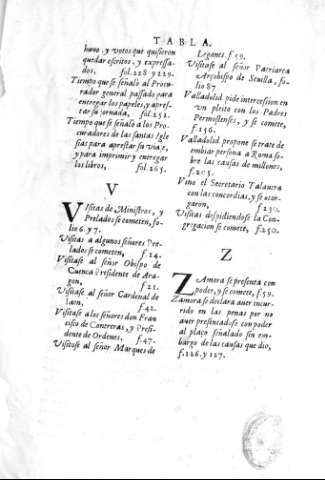 TABLA.
huuo, y votos que quisieron
quedar escritos, y expressa-
dos, fol. 228 y 229.
Tiempo que se señaló al Procu-
rador general passado para
entregar los papeles, y apres-
tar su jornada, fol. 252.
Tiempo que se señaló a los Pro-
curadores de las santas Igle
sias para aprestar su viaje,
y para imprimir y entregar
los libros, fol. 265.
V
VIsitas de Ministros, y
Prelados se cometen, fo-
lio 6. y 7.
Visitas a algunos señores Pre-
lados se cometen, f. 24.
Visitase al señor Obispo de
Cuenca Presidente de Ara-
gon, f 21.
Visitase al señor Cardenal de
Iaen, f. 42.
Visitase a los señores don Fran
cisco de Contreras, y Presi-
dente de Ordenes, f. 47.
Visitose al señor Marques de
Leganes. f. 59.
Visitose al señor Patriarca
Arçobispo de Seuilla, fo-
lio 87
Valladolid pide intercession en
vn pleito con los Padres
Premostenses, y se comete,
f. 156.
Valladolid propone se trate de
embiar persona a Roma so-
bre las causas de millones,
f. 205.
Vino el Secretario Talaura
con las concordias, y se otor-
garon, f 230.
Visitas despidiendose la Con-
gregacion se comete, f. 250.
Z
ZAmora se presenta con
poder, y se comete, f. 59.
Zamora se declara auer incur-
rido en las penas por no
auer presentadose con poder
al plaço señalado sin em-
bargo de las causas que dio,
f. 126. y 127.